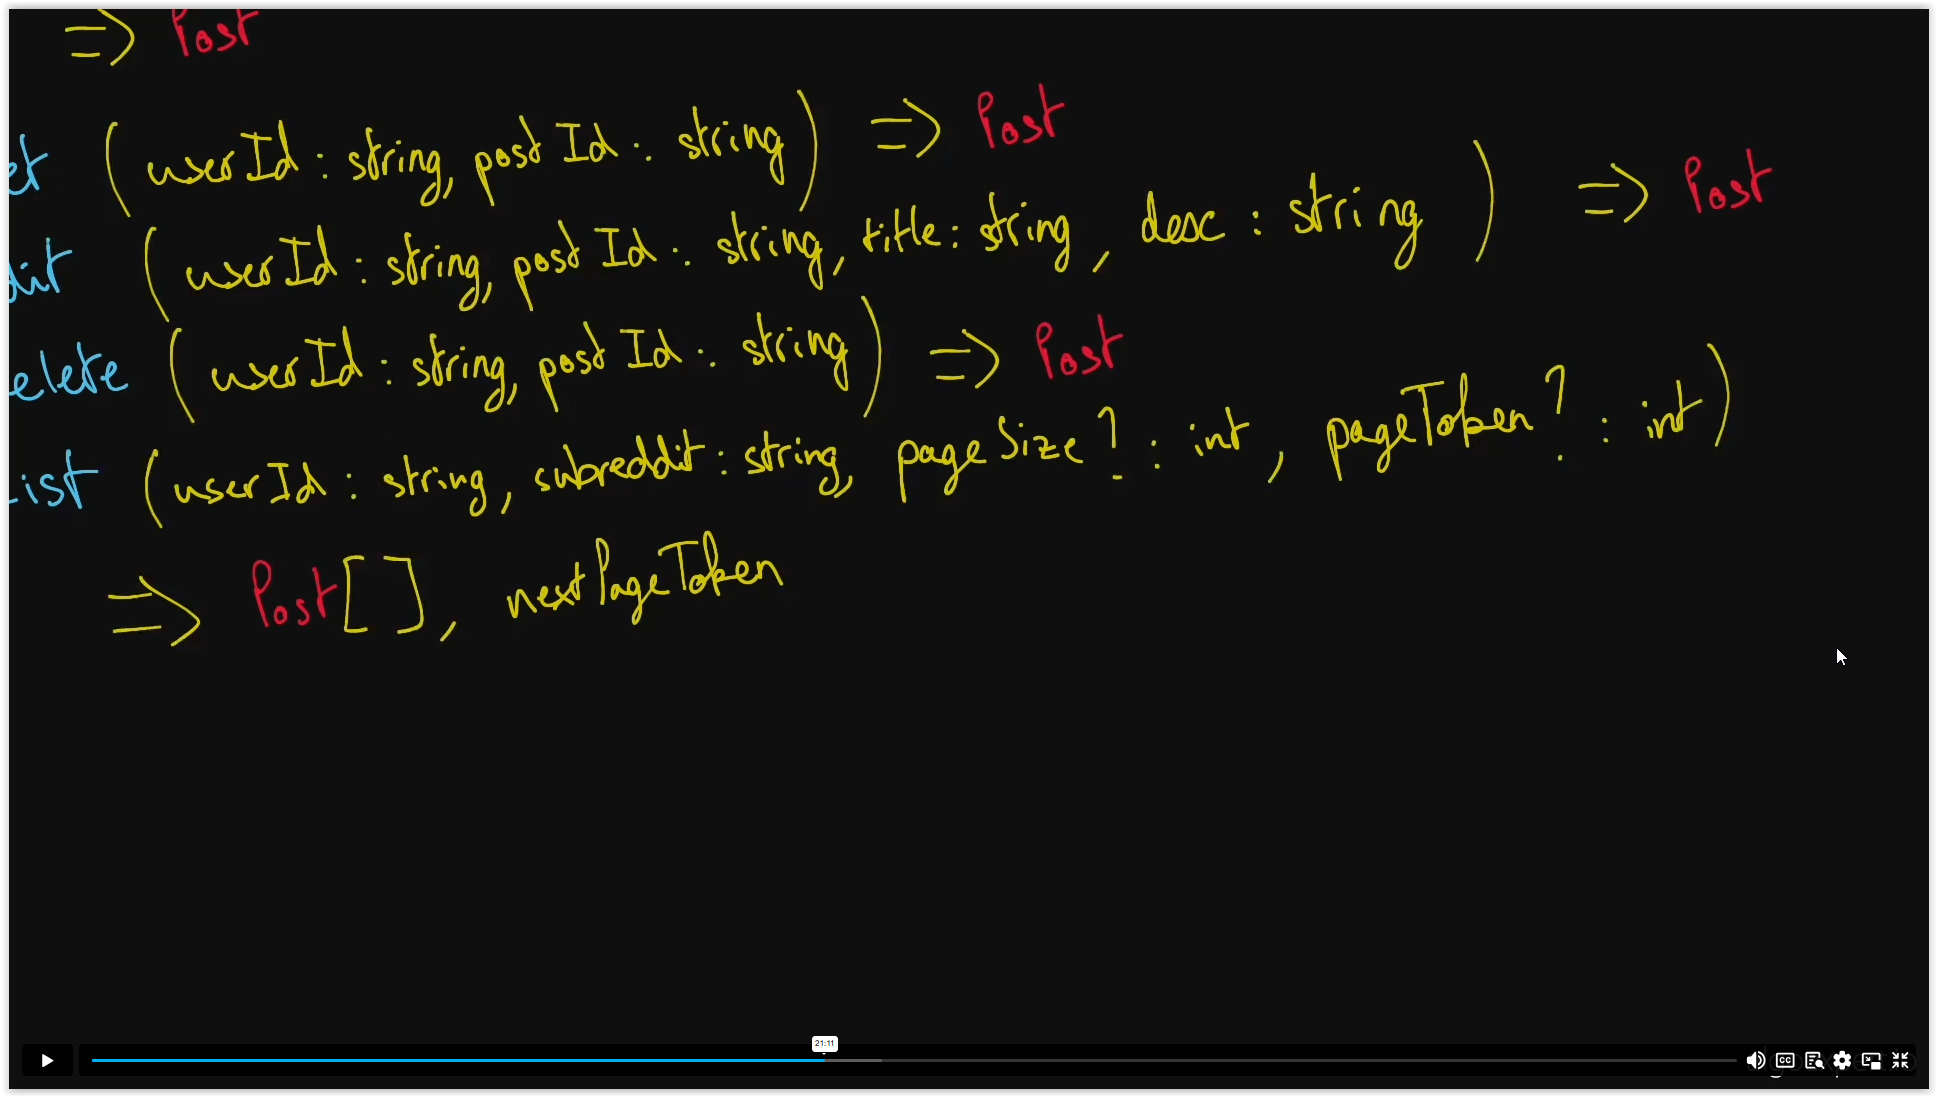 => Post
et (userId: string, postId: string) => Post
dit (userId: string, postId: string, title: string, desc: string) => Post
elete (userId: string, postId: string) => Post
List (userId: string, subreddit: string, pageSize?: int, pageToken?: int)
=> Post[], nextPageToken
21:11
CC